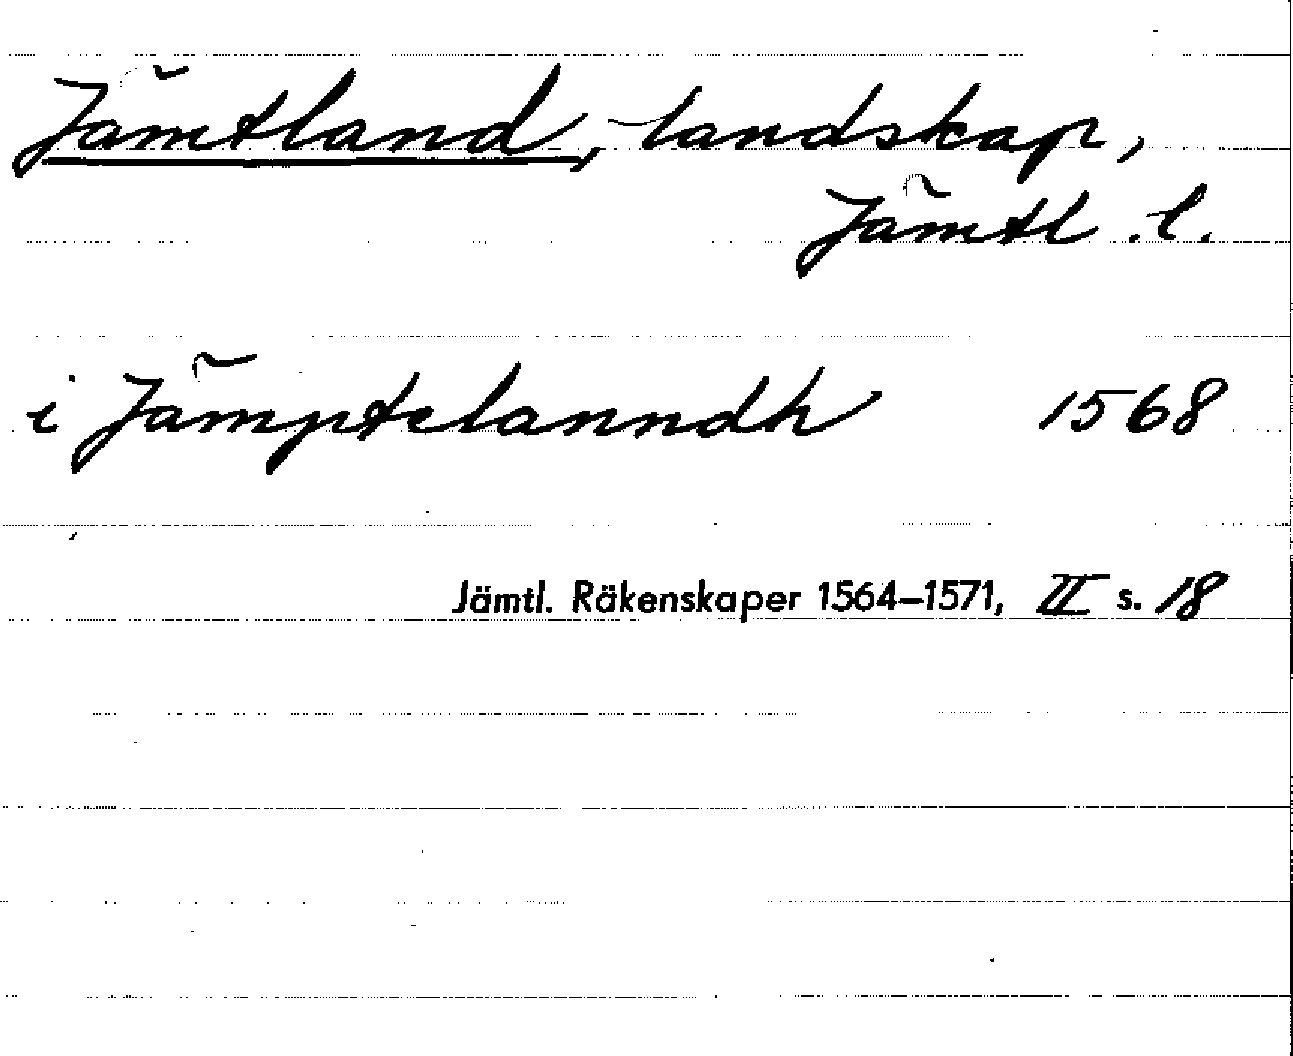 Jämtland, landskap,
Jämtl. l.
i Jämptelanndh 1568
Jämtl. Räkenskaper 1564–1571, II s. 18